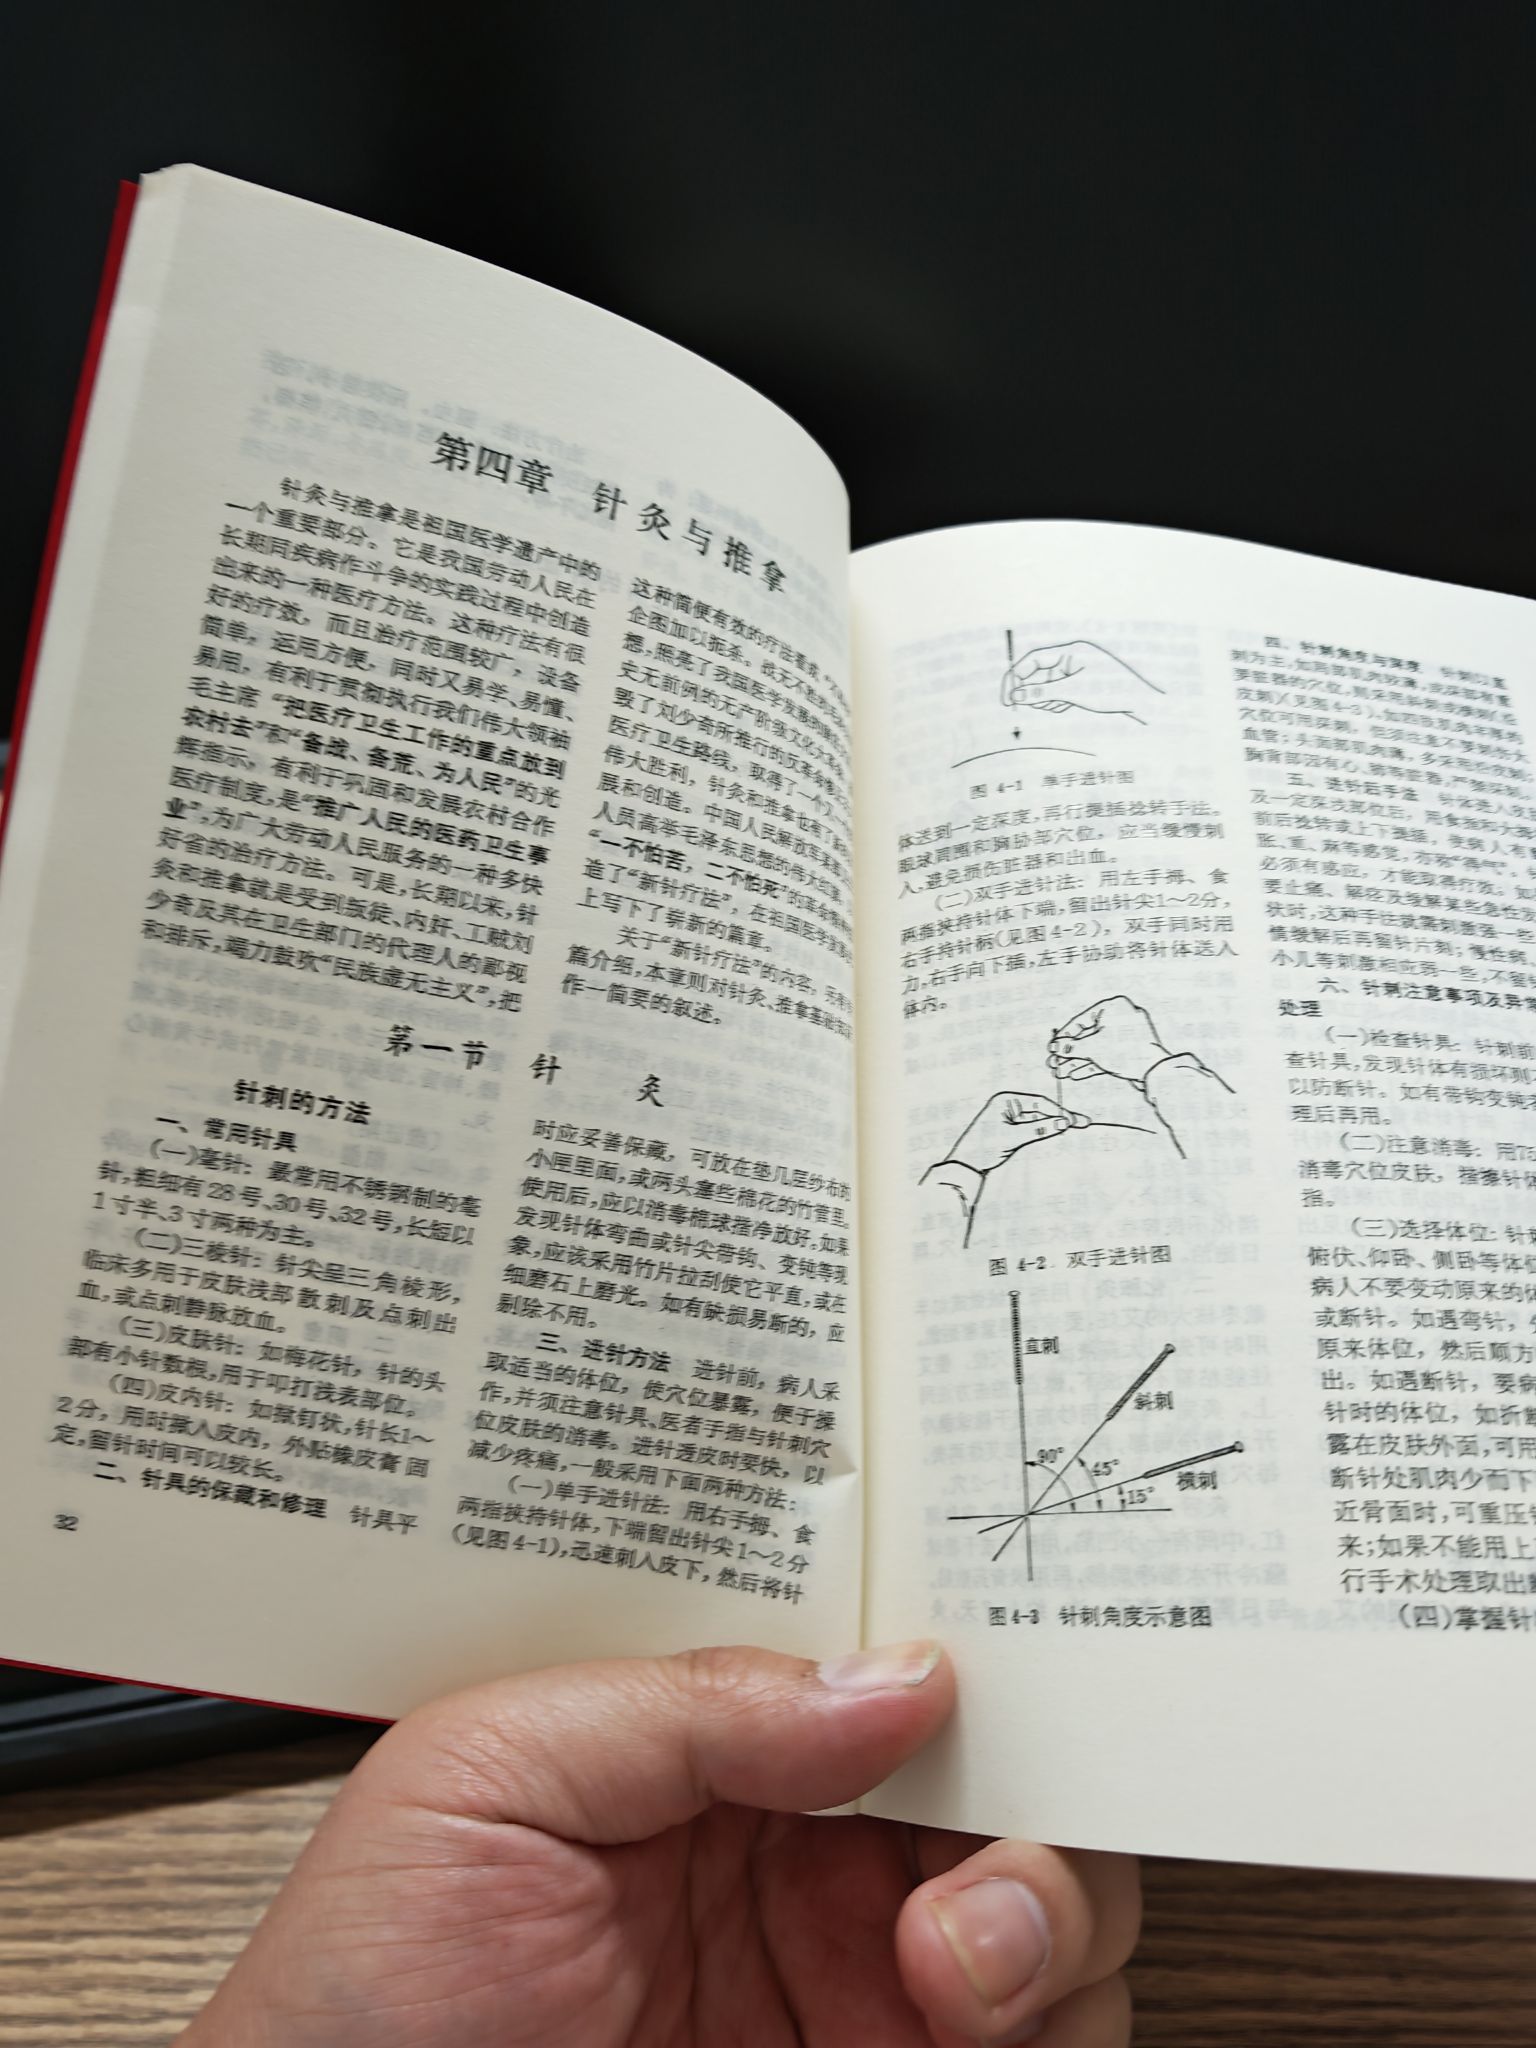 第四章 针灸与推拿
针灸与推拿是祖国医学遗产中的
一个重要部分。它是我国劳动人民在
长期同疾病作斗争的实践过程中创造
出来的一种医疗方法。这种疗法有很
好的疗效，而且治疗范围较广，设备
简单，运用方便，同时又易学、易懂、
易用，有利于贯彻执行我们伟大领袖
毛主席“把医疗卫生工作的重点放到
农村去”和“备战、备荒、为人民”的光
辉指示，有利于巩固和发展农村合作
医疗制度，是“推广人民的医药卫生事
业”，为广大劳动人民服务的一种多快
好省的治疗方法。可是，长期以来，针
灸和推拿就是受到叛徒、内奸、工贼刘
少奇及其在卫生部门的代理人的鄙视
和排斥，竭力鼓吹“民族虚无主义”，把
这种简便有效的疗法看成
企图加以扼杀。战无不胜的
想，照亮了我国医学发展的
史无前例的无产阶级文化大革命
毁了刘少奇所推行的反革命修正
医疗卫生路线，取得了一个又一个
伟大胜利，针灸和推拿也有了新的
展和创造。中国人民解放军某部
人员高举毛泽东思想的伟大红旗，以
“一不怕苦，二不怕死”的革命精神
造了“新针疗法”，在祖国医学发展
上写下了崭新的篇章。
关于“新针疗法”的内容，另有
篇介绍，本章则对针灸、推拿基础知识
作一简要的叙述。
第一节 针 灸
针刺的方法
一、常用针具
(一)毫针：最常用不锈钢制的毫
针，粗细有28号、30号、32号，长短以
1寸半、3寸两种为主。
(二)三棱针：针尖呈三角棱形，
临床多用于皮肤浅部散刺及点刺出
血，或点刺静脉放血。
(三)皮肤针：如梅花针，针的头
部有小针数根，用于叩打浅表部位。
(四)皮内针：如揿钉状，针长1～
2分，用时揿入皮内，外贴橡皮膏固
定，留针时间可以较长。
二、针具的保藏和修理 针具平
时应妥善保藏，可放在垫几层纱布的
小匣里面，或两头塞些棉花的竹管里。
使用后，应以消毒棉球揩净放好。如果
发现针体弯曲或针尖带钩、变钝等现
象，应该采用竹片拉刮使它平直，或在
细磨石上磨光。如有缺损易断的，应
剔除不用。
三、进针方法 进针前，病人采
取适当的体位，使穴位暴露，便于操
作，并须注意针具、医者手指与针刺穴
位皮肤的消毒。进针透皮时要快，以
减少疼痛，一般采用下面两种方法：
(一)单手进针法：用右手拇、食
两指挟持针体，下端留出针尖1～2分
(见图4-1)，迅速刺入皮下，然后将针
32
图 4-1 单手进针图
体送到一定深度，再行提插捻转手法。
眼球周围和胸胁部穴位，应当缓慢刺
入，避免损伤脏器和出血。
(二)双手进针法：用左手拇、食
两指挟持针体下端，留出针尖1～2分，
右手持针柄(见图4-2)，双手同时用
力，右手向下插，左手协助将针体送入
体内。
图 4-2 双手进针图
直刺
斜刺
横刺
90°
45°
15°
图4-3 针刺角度示意图
四、针刺角度与深度 针刺以直
刺为主，如局部肌肉较薄，或深部有重
要脏器的穴位，则采用斜刺或横刺(也
皮刺)(见图4-3)。如四肢肌肉丰厚的
穴位可用深刺，但须注意不要刺伤大
血管；头面部肌肉薄，多采用
胸背部因有心、肺等脏器，严禁深刺。
五、进针后手法 针体进入皮
及一定深浅部位后，用食指和大拇
前后捻转或上下提插，使病人有
胀、重、麻等感觉，亦称“得气”。针
必须有感应，才能取得疗效。如
要止痛、解痉及缓解某些急性
状时，这种手法就需刺激强一些，
情缓解后再留针片刻；慢性病、
小儿等刺激相应弱一些，不留
六、针刺注意事项及异常
处理
(一)检查针具：针刺前
查针具，发现针体有损坏则
以防断针。如有带钩变钝
理后再用。
(二)注意消毒：用75
消毒穴位皮肤，揩擦针体
指。
(三)选择体位：针刺
俯伏、仰卧、侧卧等体位
病人不要变动原来的体
或断针。如遇弯针，
原来体位，然后顺方
出。如遇断针，要病
针时的体位，如折断
露在皮肤外面，可用
断针处肌肉少而下
近骨面时，可重压
来；如果不能用上
行手术处理取出
(四)掌握针